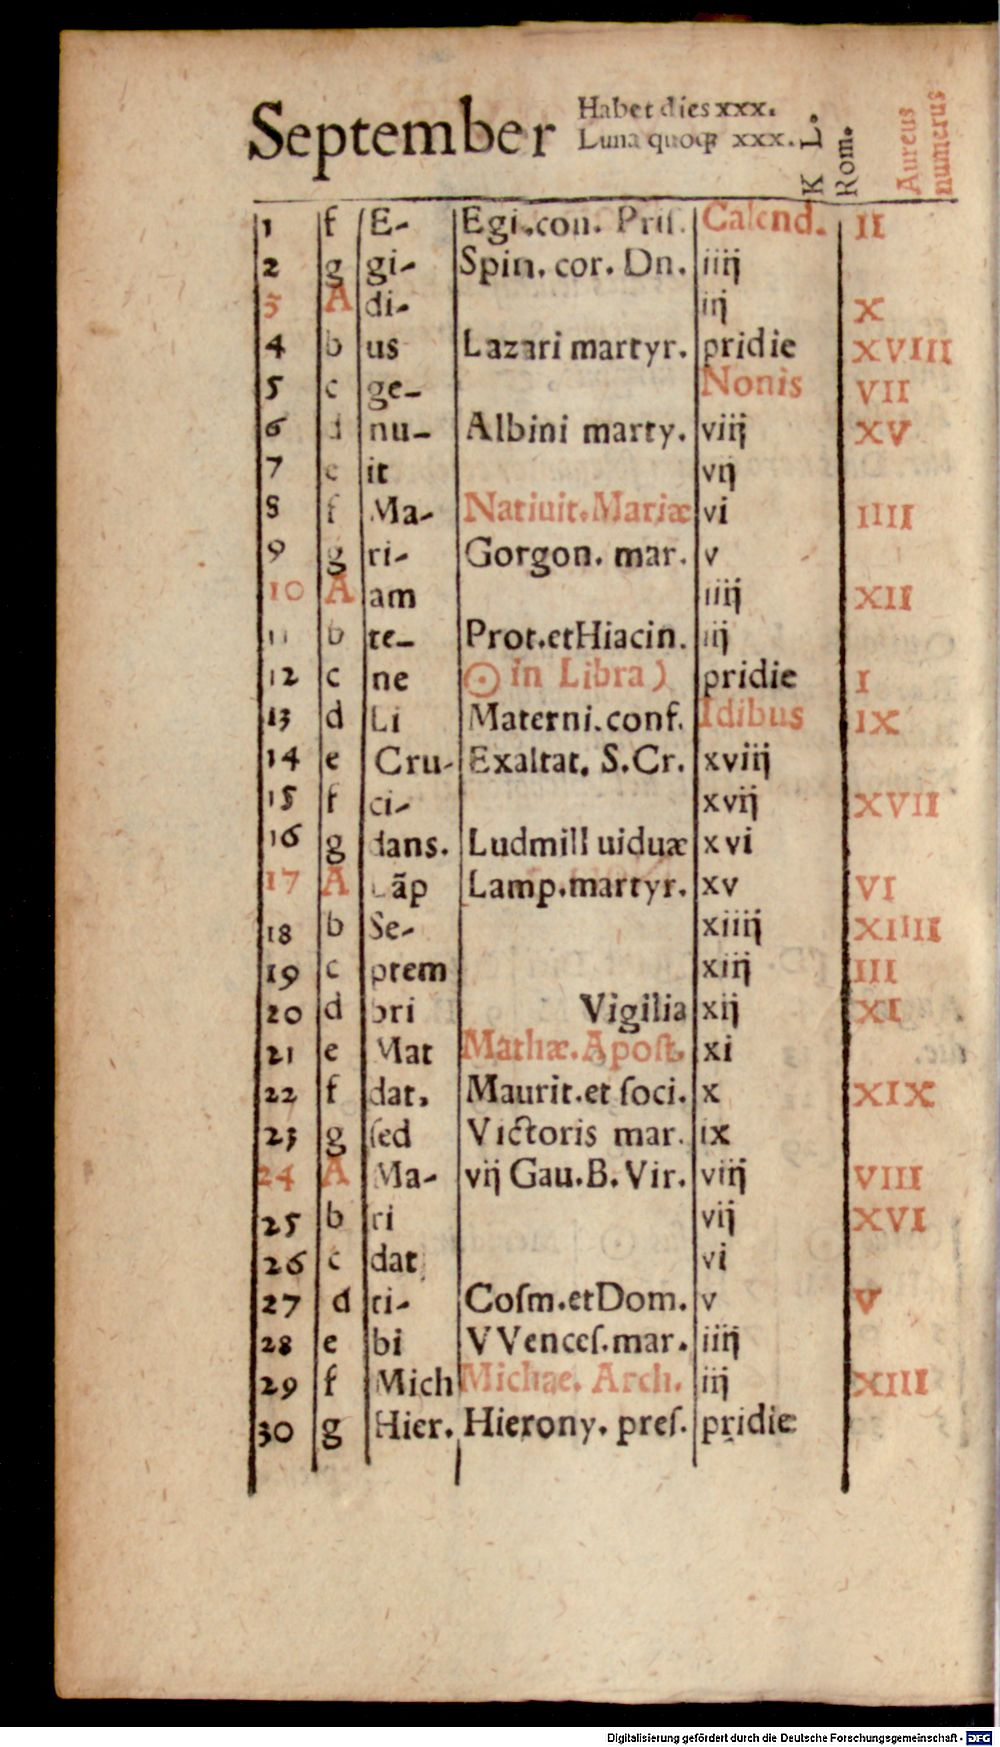 September Habet dies xxx.
Luna quoqꝫ xxx.
K L. Rom.
Aureus numerus
1 f E- Egi.con. Priſ. Calend. II
2 g gi- Spin. cor. Dn. iiij
5 A di- iij X
4 b us Lazari martyr. pridie XVIII
5 c ge- Nonis VII
6 d nu- Albini marty. viij XV
7 e it vij
8 f Ma- Natiuit.Mariæ vi IIII
9 g ri- Gorgon. mar. v
10 A am iiij XII
11 b te- Prot.etHiacin. iij
12 c ne ☉ in Libra) pridie I
13 d Li Materni.conf. Idibus IX
14 e Cru- Exaltat. S.Cr. xviij
15 f ci- xvij XVII
16 g dans. Ludmill uiduæ xvi
17 A Lãp Lamp.martyr. xv VI
18 b Se- xiiij XIIII
19 c ptem xiij III
20 d bri Vigilia xij XI
21 e Mat Mathæ.Apost. xi
22 f dat, Maurit.et ſoci. x XIX
23 g ſed Victoris mar. ix
24 A Ma- vij Gau.B.Vir. viij VIII
25 b ri vij XVI
26 c dat vi
27 d ti- Coſm.etDom. v V
28 e bi VVenceſ.mar. iiij
29 f Mich Michae. Arch. iij XIII
30 g Hier. Hierony. preſ. pridie
Digitalisierung gefördert durch die Deutsche Forschungsgemeinschaft - DFG